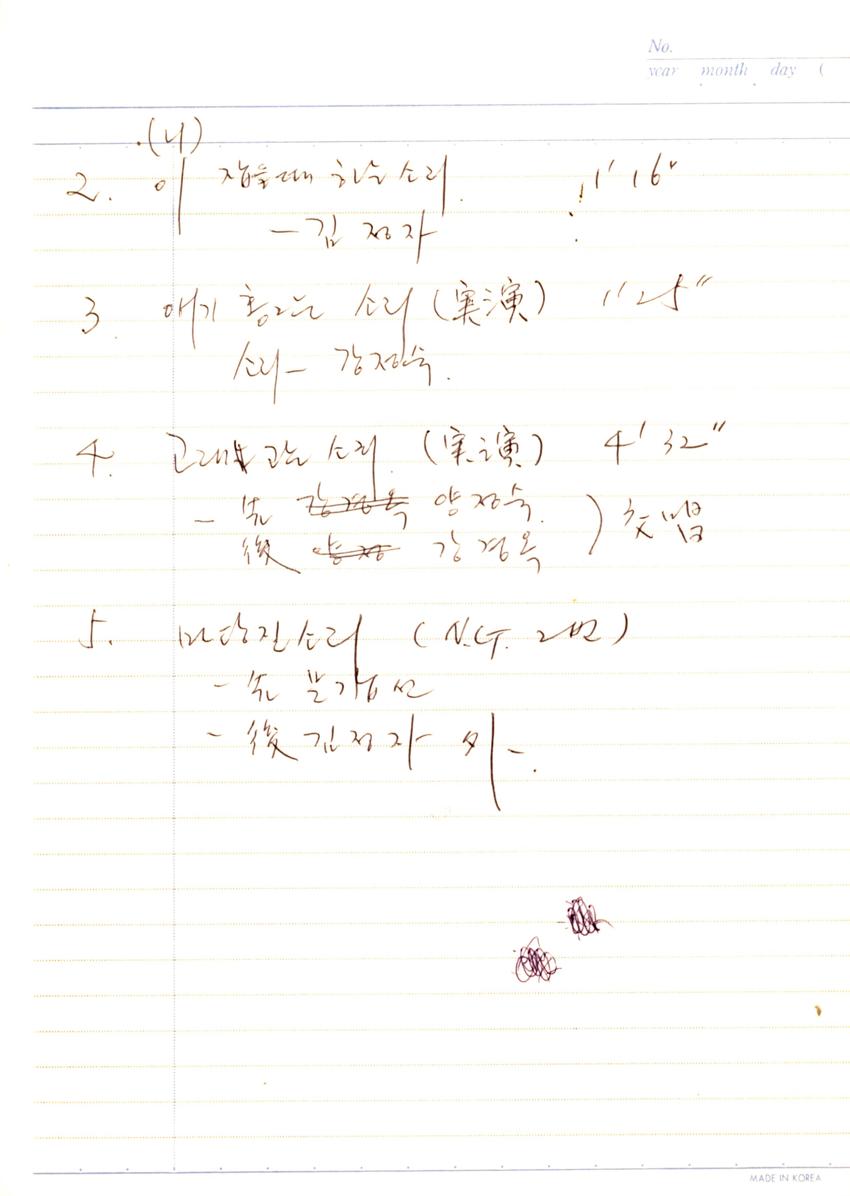 No.
year month day (
(니)
2. 이 잡을때 하는 소리. 1' 16"
- 김 정자
3. 애기 흥그는 소리 (実演) 1' 25"
소리 - 강정숙.
4. 고래 고는 소리 (実演) 4' 32"
- 先 강경옥 양정숙.
後 양정 강경옥 ) 交唱
5. 마당질소리 (N.G. 2번)
- 先
- 後 김정자 외 -.
MADE IN KOREA